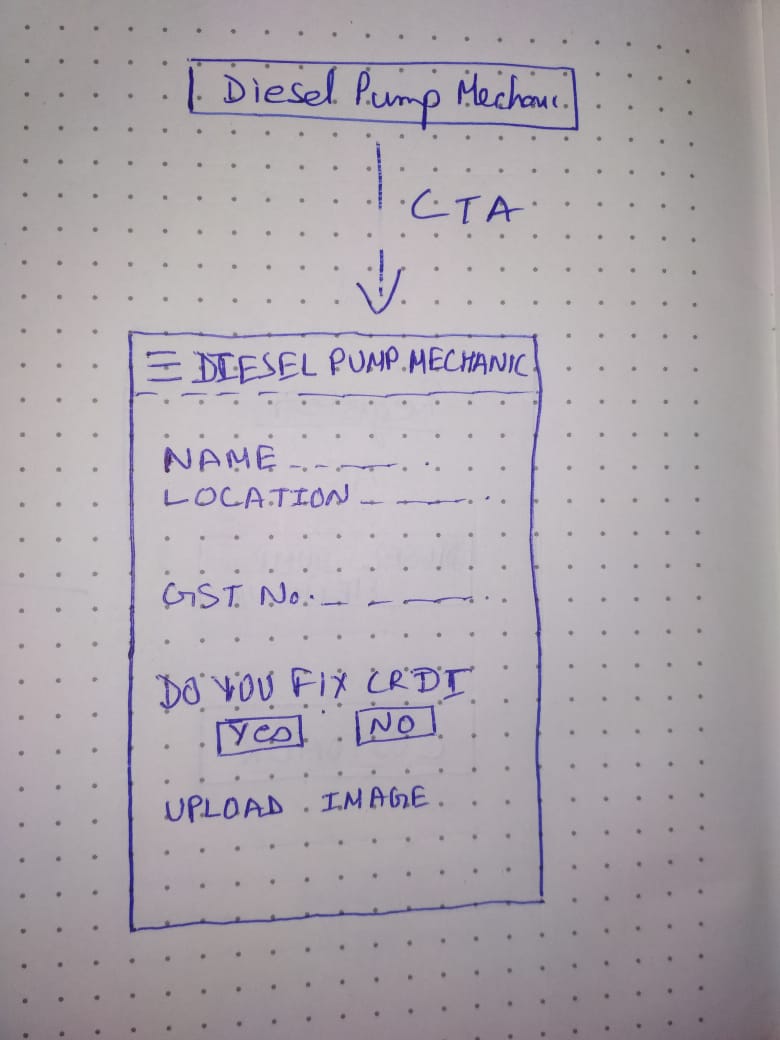 Diesel Pump Mechanic
CTA
DIESEL PUMP MECHANIC
NAME
LOCATION
GST No.
DO YOU FIX CRDI
Yes NO
UPLOAD IMAGE